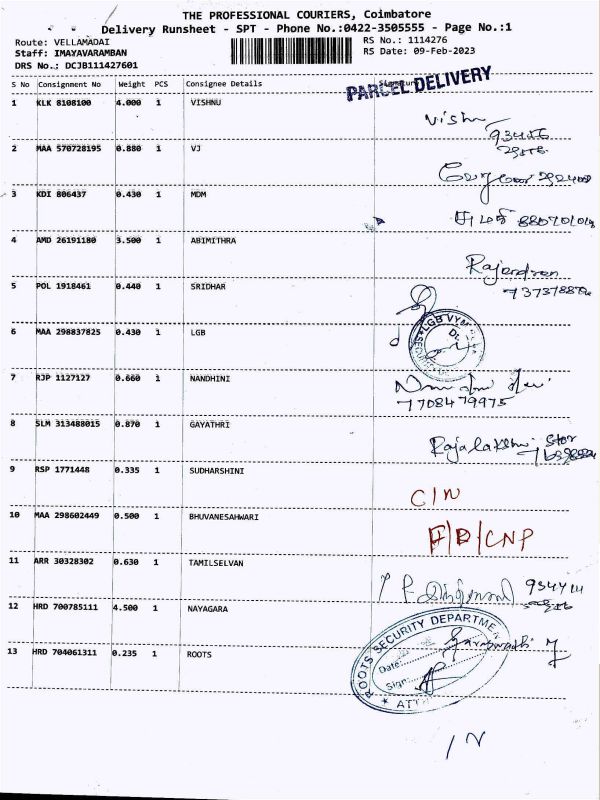 THE PROFESSIONAL COURIERS, Coimbatore
Delivery Runsheet - SPT - Phone No.:0422-3505555 - Page No.:1
Route: VELLAMADAI
Staff: IMAYAVARAMBAN
DRS No.: DCJB111427601
RS No.: 1114276
RS Date: 09-Feb-2023
S No Consignment No Weight PCS Consignee Details Signature
PARCEL DELIVERY
1 KLK 8108100 4.000 1 VISHNU
2 MAA 570728195 0.880 1 VJ
3 KDI 806437 0.430 1 MDM
4 AMD 26191180 3.500 1 ABIMITHRA
Rajendran
5 POL 1918461 0.440 1 SRIDHAR
6 MAA 298837825 0.430 1 LGB
7 RJP 1127127 0.660 1 NANDHINI
7708479975
8 SLM 313488015 0.870 1 GAYATHRI
9 RSP 1771448 0.335 1 SUDHARSHINI
C/N
10 MAA 298602449 0.500 1 BHUVANESAHWARI
F/D/CNP
11 ARR 30328302 0.630 1 TAMILSELVAN
12 HRD 700785111 4.500 1 NAYAGARA
13 HRD 704061311 0.235 1 ROOTS
ROOTS SECURITY DEPARTMENT
Date:
Sign: